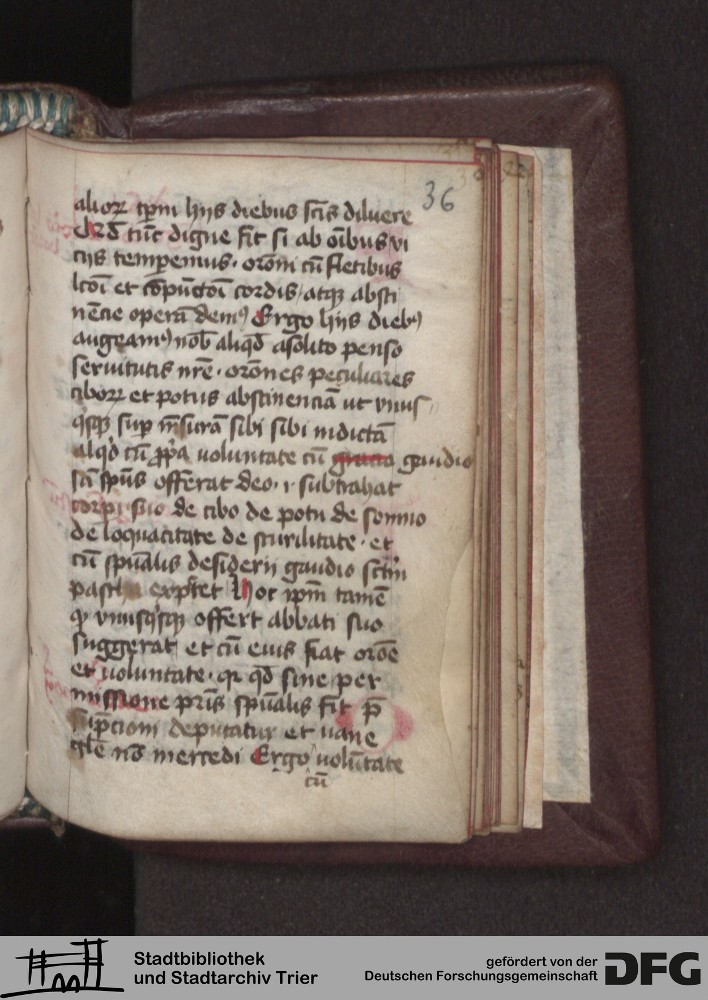 36
alioꝝ tꝑm hijs diebus sc̄is diluere
qd̄ tūc digne fit si ab oībus vi
cijs temꝑemus · oroni cū fletibus
lcōi et cōpūctōi cordis atqꝫ absti
nēcie operā demꝰ Ergo hijs diebꝰ
augeamꝰ nob̄ aliqd̄ a solito penso
seruitutis nr̄e · orōnes peculiares
ciboꝝ et potus abstinenciā ut vnus
qͥsqꝫ suꝑ mēsurā sibi sibi indictā
alqͥd cū ꝓpͥa voluntate cū gaudio
sc̄i sp̄us offerat deo · ⁊ subtrahat
corpi suo de cibo de potu de sompno
de loquacitate de scurilitate · et
cū sp̄ualis desiderij gaudio sctm̄
pascha expc̄tet Hoc ip̄m tamē
qͦ vnusqͥsqꝫ offert abbati suo
suggerat et cū eius fiat orōe
et voluntate · qꝛ qd̄ sine per
missione pr̄is sp̄ualis fit p̄
sūpcioni deputatur et uane
gl̄e nō mercedi Ergo voluntate
cū
Stadtbibliothek
und Stadtarchiv Trier
gefördert von der
Deutschen Forschungsgemeinschaft
DFG